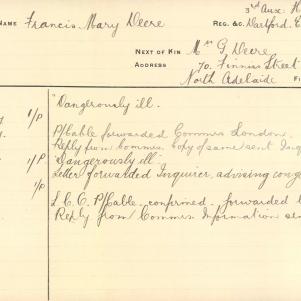 3rd Aux: H
NAME Francis Mary Deere REG. &C. Dartford. E
NEXT OF KIN Mrs G. Deere
ADDRESS 70. Finniss Street
North Adelaide
"Dangerously ill.
1/P P/Cable forwarded Commrs London.
Reply from Commrs. copy of same sent Inq
1/P "Dangerously ill"
Letter forwarded Inquirer, advising
1/p
L.C.C. P/Cable confirmed, forwarded
Reply from Commrs Information sen